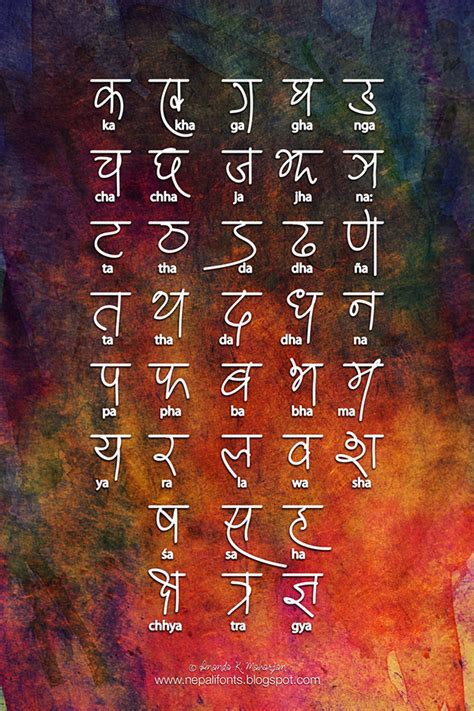 क ख ग घ ङ
ka kha ga gha nga
च छ ज झ ञ
cha chha ja jha na:
ट ठ ड ढ णे
ta tha da dha ña
त थ द ध न
ta tha da dha na
प फ ब भ म
pa pha ba bha ma
य र ल व श
ya ra la wa sha
ष स ह
śa sa ha
क्ष त्र ज्ञ
chhya tra gya
© Ananda K. Maharjan
www.nepalifonts.blogspot.com